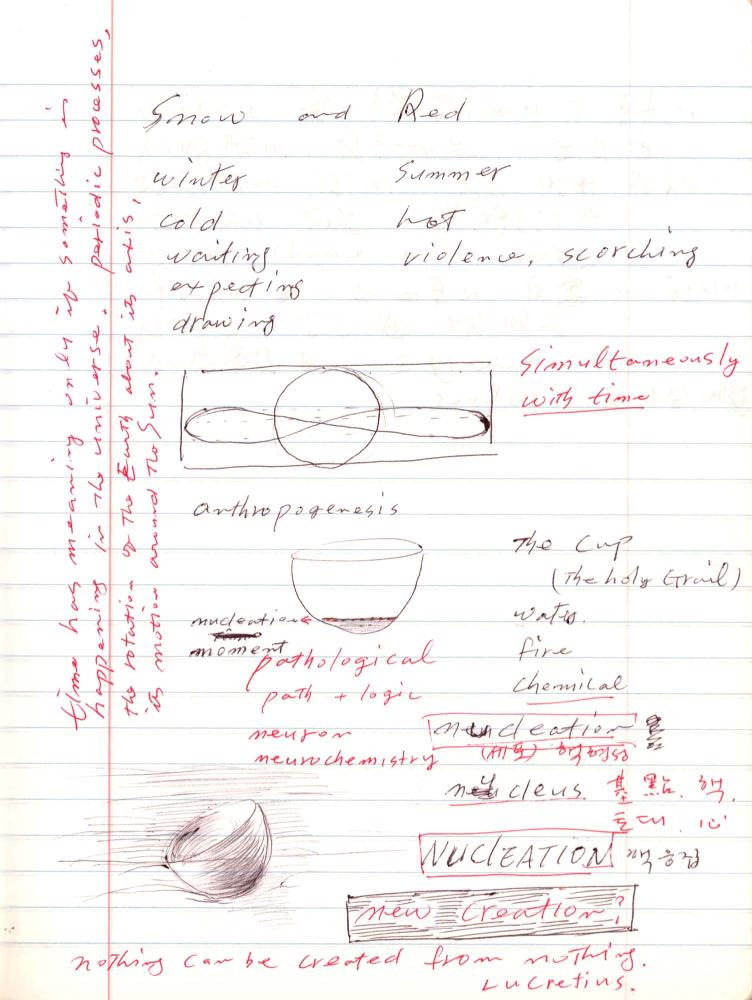 Snow and Red
winter Summer
cold hot
waiting violence, scorching
expecting
drawing
Simultaneously
with time
anthropogenesis
The Cup
(The holy Grail)
water.
fire
chemical
nucleation
moment
pathological
path + logic
neuron
neurochemistry
nucleation
(세포) 핵형성
nucleus 基點. 핵.
토대. 心
NUCLEATION 핵응집
new creation?
nothing can be created from nothing.
Lucretius.
time has meaning only if something is
happening in the universe. periodic processes,
the rotation of the Earth about its axis,
its motion around the Sun.